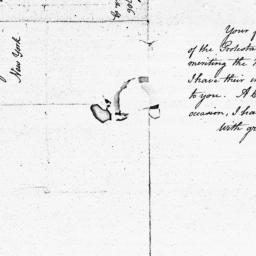 New York
Your f
of the Protesta
meriting the
I have their u
to you. A
occasion, I ha
With gr